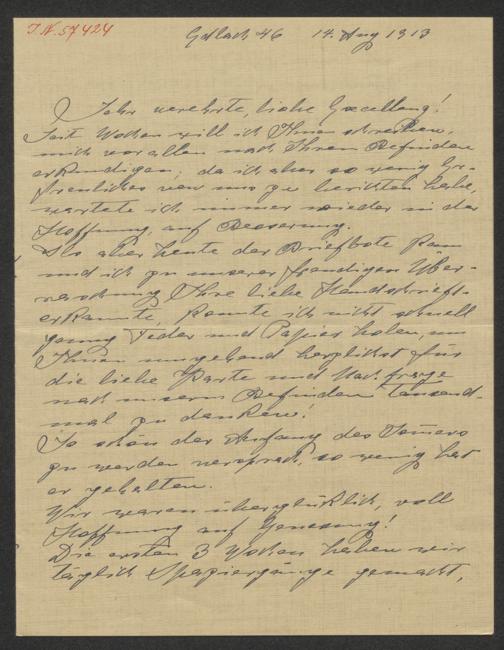 J.N. 57424
Edlach 46 14. Aug 1913
Sehr verehrte, liebe Excellenz!
Seit Wochen will ich Ihnen schreiben,
mich vor allem nach Ihrem Befinden
erkundigen; da ich aber so wenig Er-
freuliches von uns zu berichten habe,
wartete ich immer wieder in der
Hoffnung, auf Besserung.
Als aber heute der Briefbote kam
und ich zu unserer freudigen Über-
raschung Ihre liebe Handschrift
erkannte konnte ich nicht schnell
genug Feder und Papier holen, um
Ihnen umgehend herzlichst für
die liebe Karte und Nachfrage
nach unserm Befinden tausend-
mal zu danken!
So schön der Anfang des Somers
zu werden versprach, so wenig hat
er gehalten.
Wir waren überglücklich, voll
Hoffnung auf Genesung!
Die ersten 3 Wochen haben wir
täglich Spaziergänge gemacht,